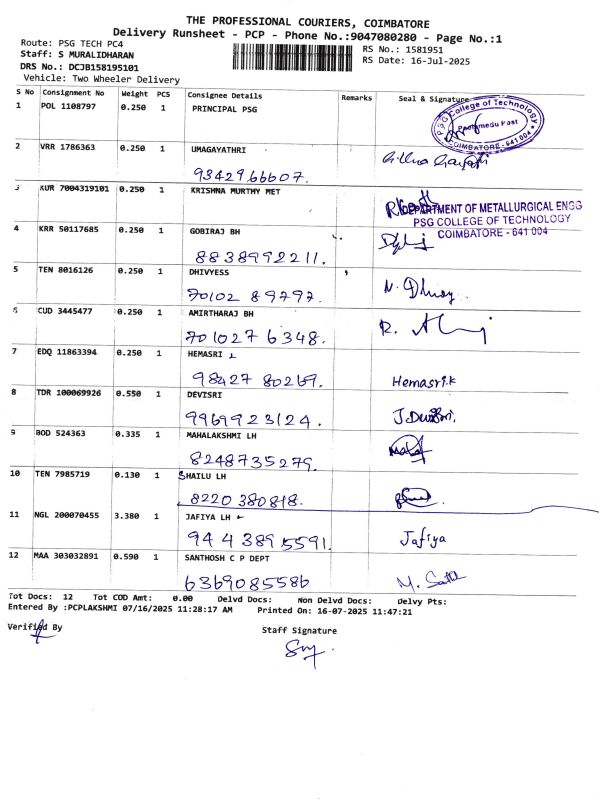 THE PROFESSIONAL COURIERS, COIMBATORE
Delivery Runsheet - PCP - Phone No.:9047080280 - Page No.:1
Route: PSG TECH PC4
Staff: S MURALIDHARAN
DRS No.: DCJB158195101
Vehicle: Two Wheeler Delivery
RS No.: 1581951
RS Date: 16-Jul-2025
S No Consignment No Weight PCS Consignee Details Remarks Seal & Signature
1 POL 1108797 0.250 1 PRINCIPAL PSG
PSG College of Technology
Peelamedu Post
COIMBATORE - 641 004
2 VRR 1786363 0.250 1 UMAGAYATHRI
9342966607.
3 KUR 7004319101 0.250 1 KRISHNA MURTHY MET
DEPARTMENT OF METALLURGICAL ENGG
PSG COLLEGE OF TECHNOLOGY
COIMBATORE - 641 004
4 KRR 50117685 0.250 1 GOBIRAJ BH
8838992211.
5 TEN 8016126 0.250 1 DHIVYESS
70102 89797. N. Dhivay
6 CUD 3445477 0.250 1 AMIRTHARAJ BH
7010276348.
7 EDQ 11863394 0.250 1 HEMASRI L
98427 80269. Hemasri.k
8 TDR 100069926 0.550 1 DEVISRI
9969923124. J.Devisri.
9 BOD 524363 0.335 1 MAHALAKSHMI LH
8248735279.
10 TEN 7985719 0.130 1 SHAILU LH
8220 380818.
11 NGL 200070455 3.380 1 JAFIYA LH
9443895591. Jafiya
12 MAA 303032891 0.590 1 SANTHOSH C P DEPT
6369085586
Tot Docs: 12 Tot COD Amt: 0.00 Delvd Docs: Non Delvd Docs: Delvy Pts:
Entered By :PCPLAKSHMI 07/16/2025 11:28:17 AM Printed On: 16-07-2025 11:47:21
Verified By
Staff Signature